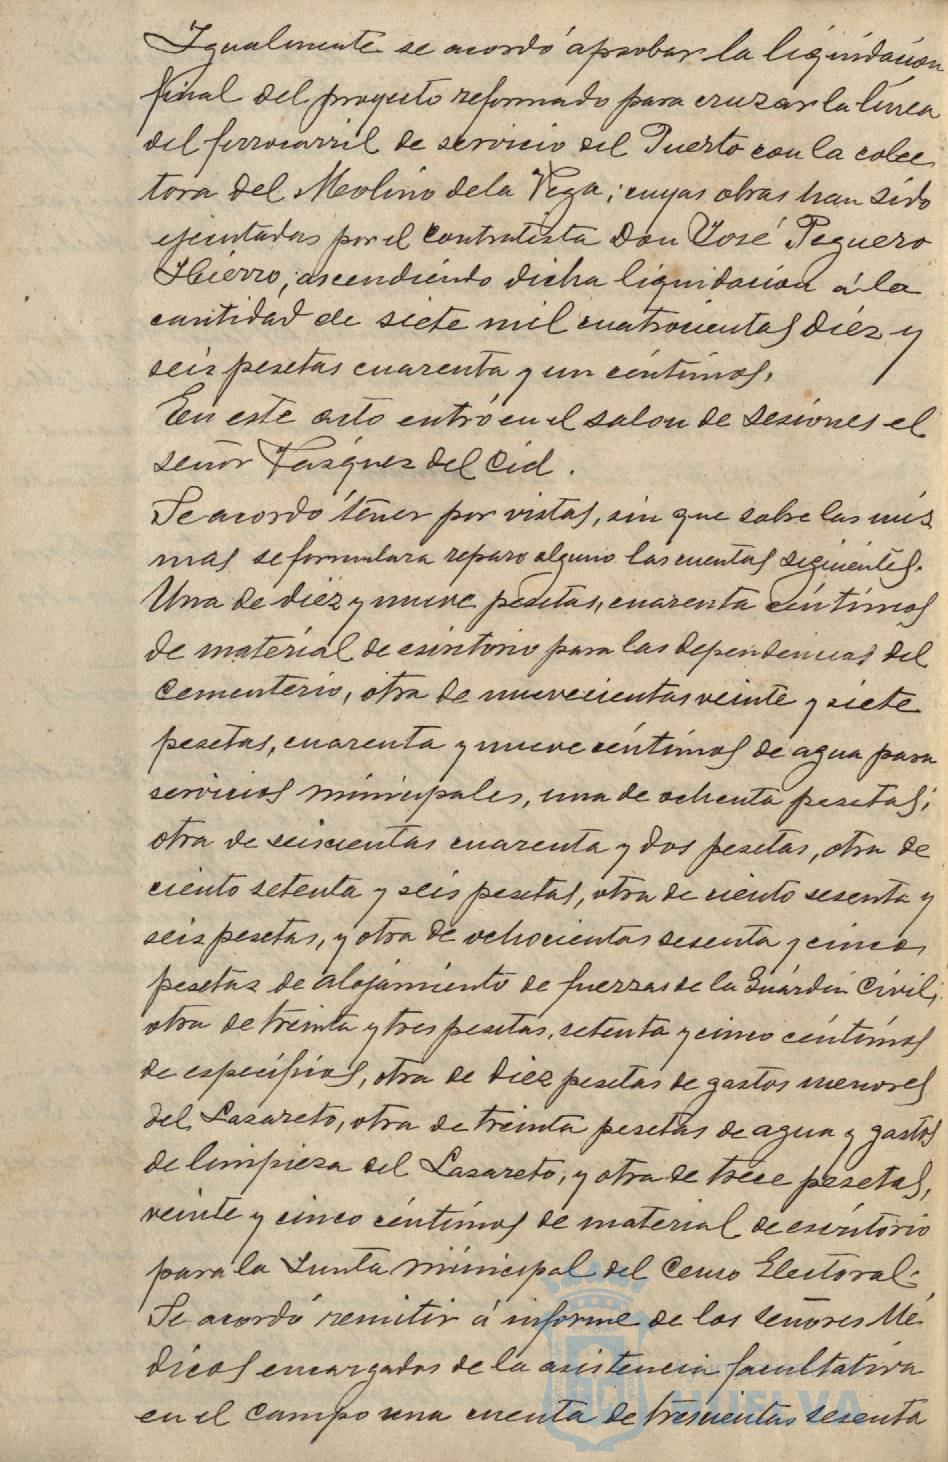 Igualmente se acordó aprobar la liquidacion
final del proyecto reformado para cruzar la línea
del ferrocarril de servicio del Puerto con la colec
tora del Molino dela Vega; cuyas obras han sido
ejecutadas por el contratista Don José Peguero
Hierro; ascendiendo dicha liquidacion á la
cantidad de siete mil cuatrocientas diéz y
seis pesetas cuarenta y un céntimos.
En este acto entró en el salon de sesiones el
señor Vazquez del Cid.
Se acordó tener por vistas, sin que sobre las mis
mas se formulara reparo alguno las cuentas siguientes.
Una de diéz y nueve pesetas, cuarenta céntimos
de material de escritorio para las dependencias del
Cementerio, otra de nuevecientas veinte y siete
pesetas, cuarenta y nueve céntimos de agua para
servicios municipales, una de ochenta pesetas;
otra de seiscientas cuarenta y dos pesetas, otra de
ciento setenta y seis pesetas, otra de ciento sesenta y
seis pesetas, y otra de ochocientas sesenta y cinco
pesetas de alojamiento de fuerzas de la Guardia Civil;
otra de treinta y tres pesetas, setenta y cinco céntimos
de específicos, otra de diez pesetas de gastos menores
del Lazareto, otra de treinta pesetas de agua y gastos
de limpieza del Lazareto, y otra de trece pesetas,
veinte y cinco céntimos de material de escritorio
para la Junta Municipal del Censo Electoral.
Se acordó remitir á informe de los señores Mé
dicos encargados de la asistencia facultativa
en el campo una cuenta de trescientas sesenta
HUELVA